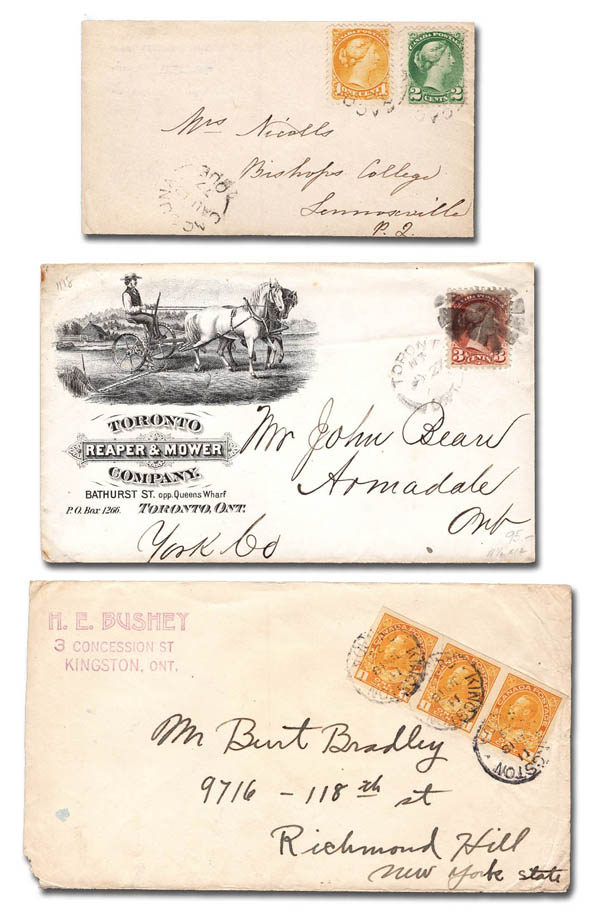 CANADA POSTAGE
1 ONE CENT 1
CANADA POSTAGE
2 CENTS 2
Mrs Nicolls
Bishops College
Lennoxville
P. Q.
TORONTO
REAPER & MOWER
COMPANY.
BATHURST ST. opp. Queens Wharf
P.O. Box 1266. TORONTO, ONT.
3 CENTS 3
TORONTO
27
Mr John Beard
Armadale
Ont
York Co
95
H. E. BUSHEY
3 CONCESSION ST
KINGSTON, ONT.
CANADA POSTAGE
KINGSTON
Mr Burt Bradley
9716 - 118th st
Richmond Hill
New York State